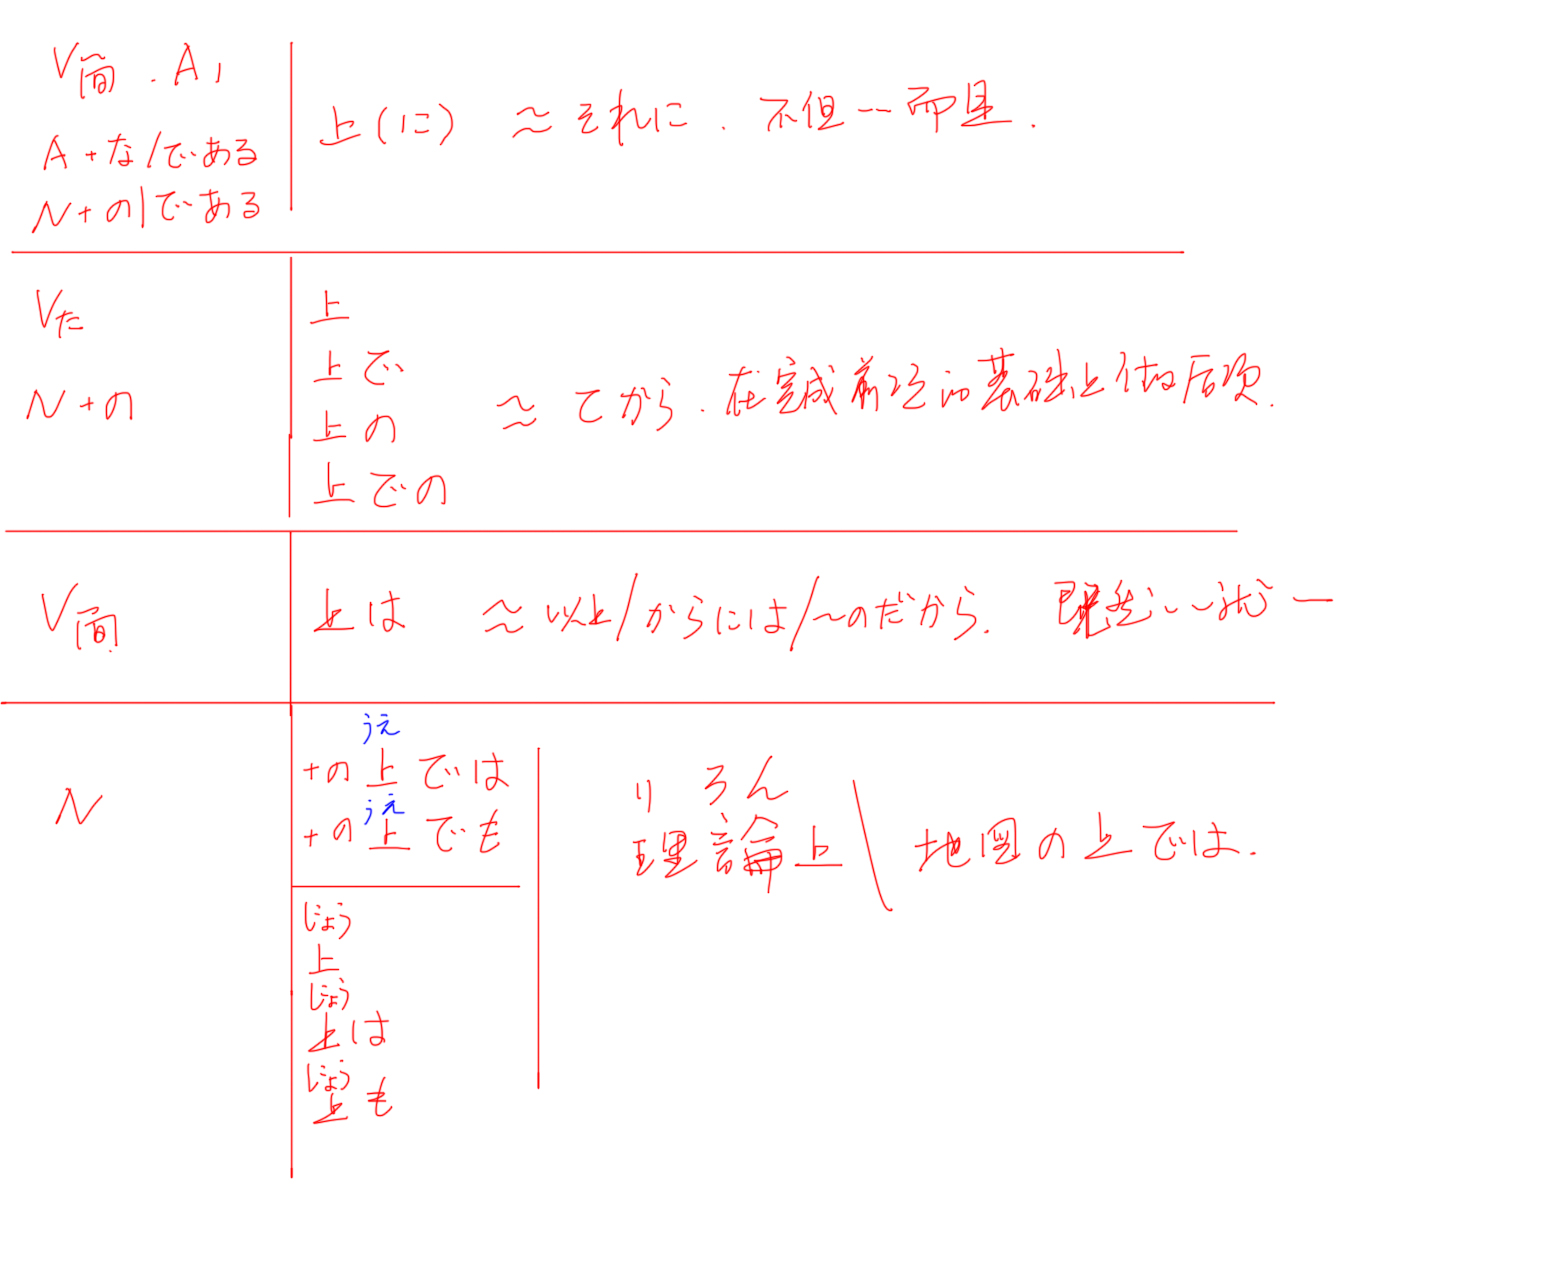 V简 . A1
A + な/である
N + の/である
上(に) ≈ それに . 不但--而且 .
Vた
N + の
上
上で
上の
上での
≈ てから . 在完成前项的基础上做后项 .
V简
上は ≈ 以上/からには/~のだから . 既然··就—
N
うえ
+の上では
うえ
+の上でも
じょう
上
じょう
上は
じょう
上も
り ろん
理論上 \ 地図の上では .